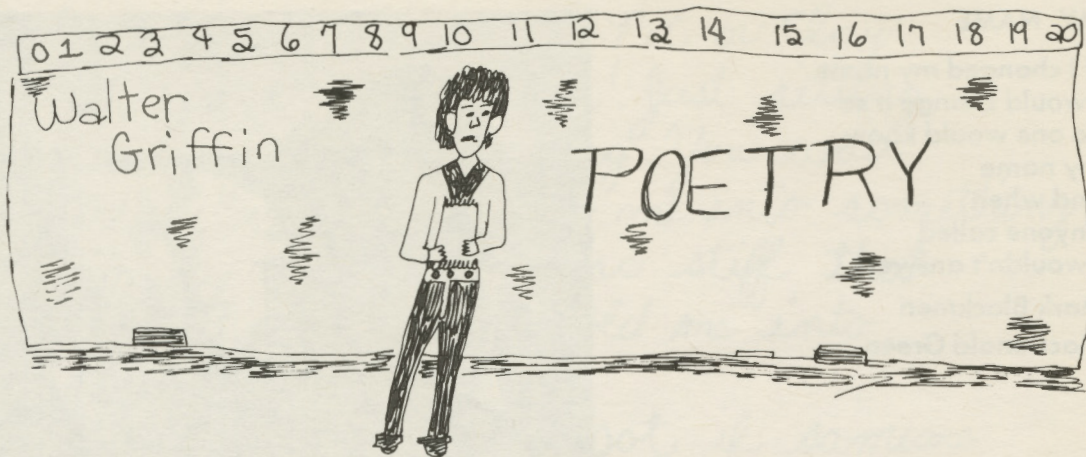 0 1 2 3 4 5 6 7 8 9 10 11 12 13 14 15 16 17 18 19 20
Walter
Griffin
POETRY